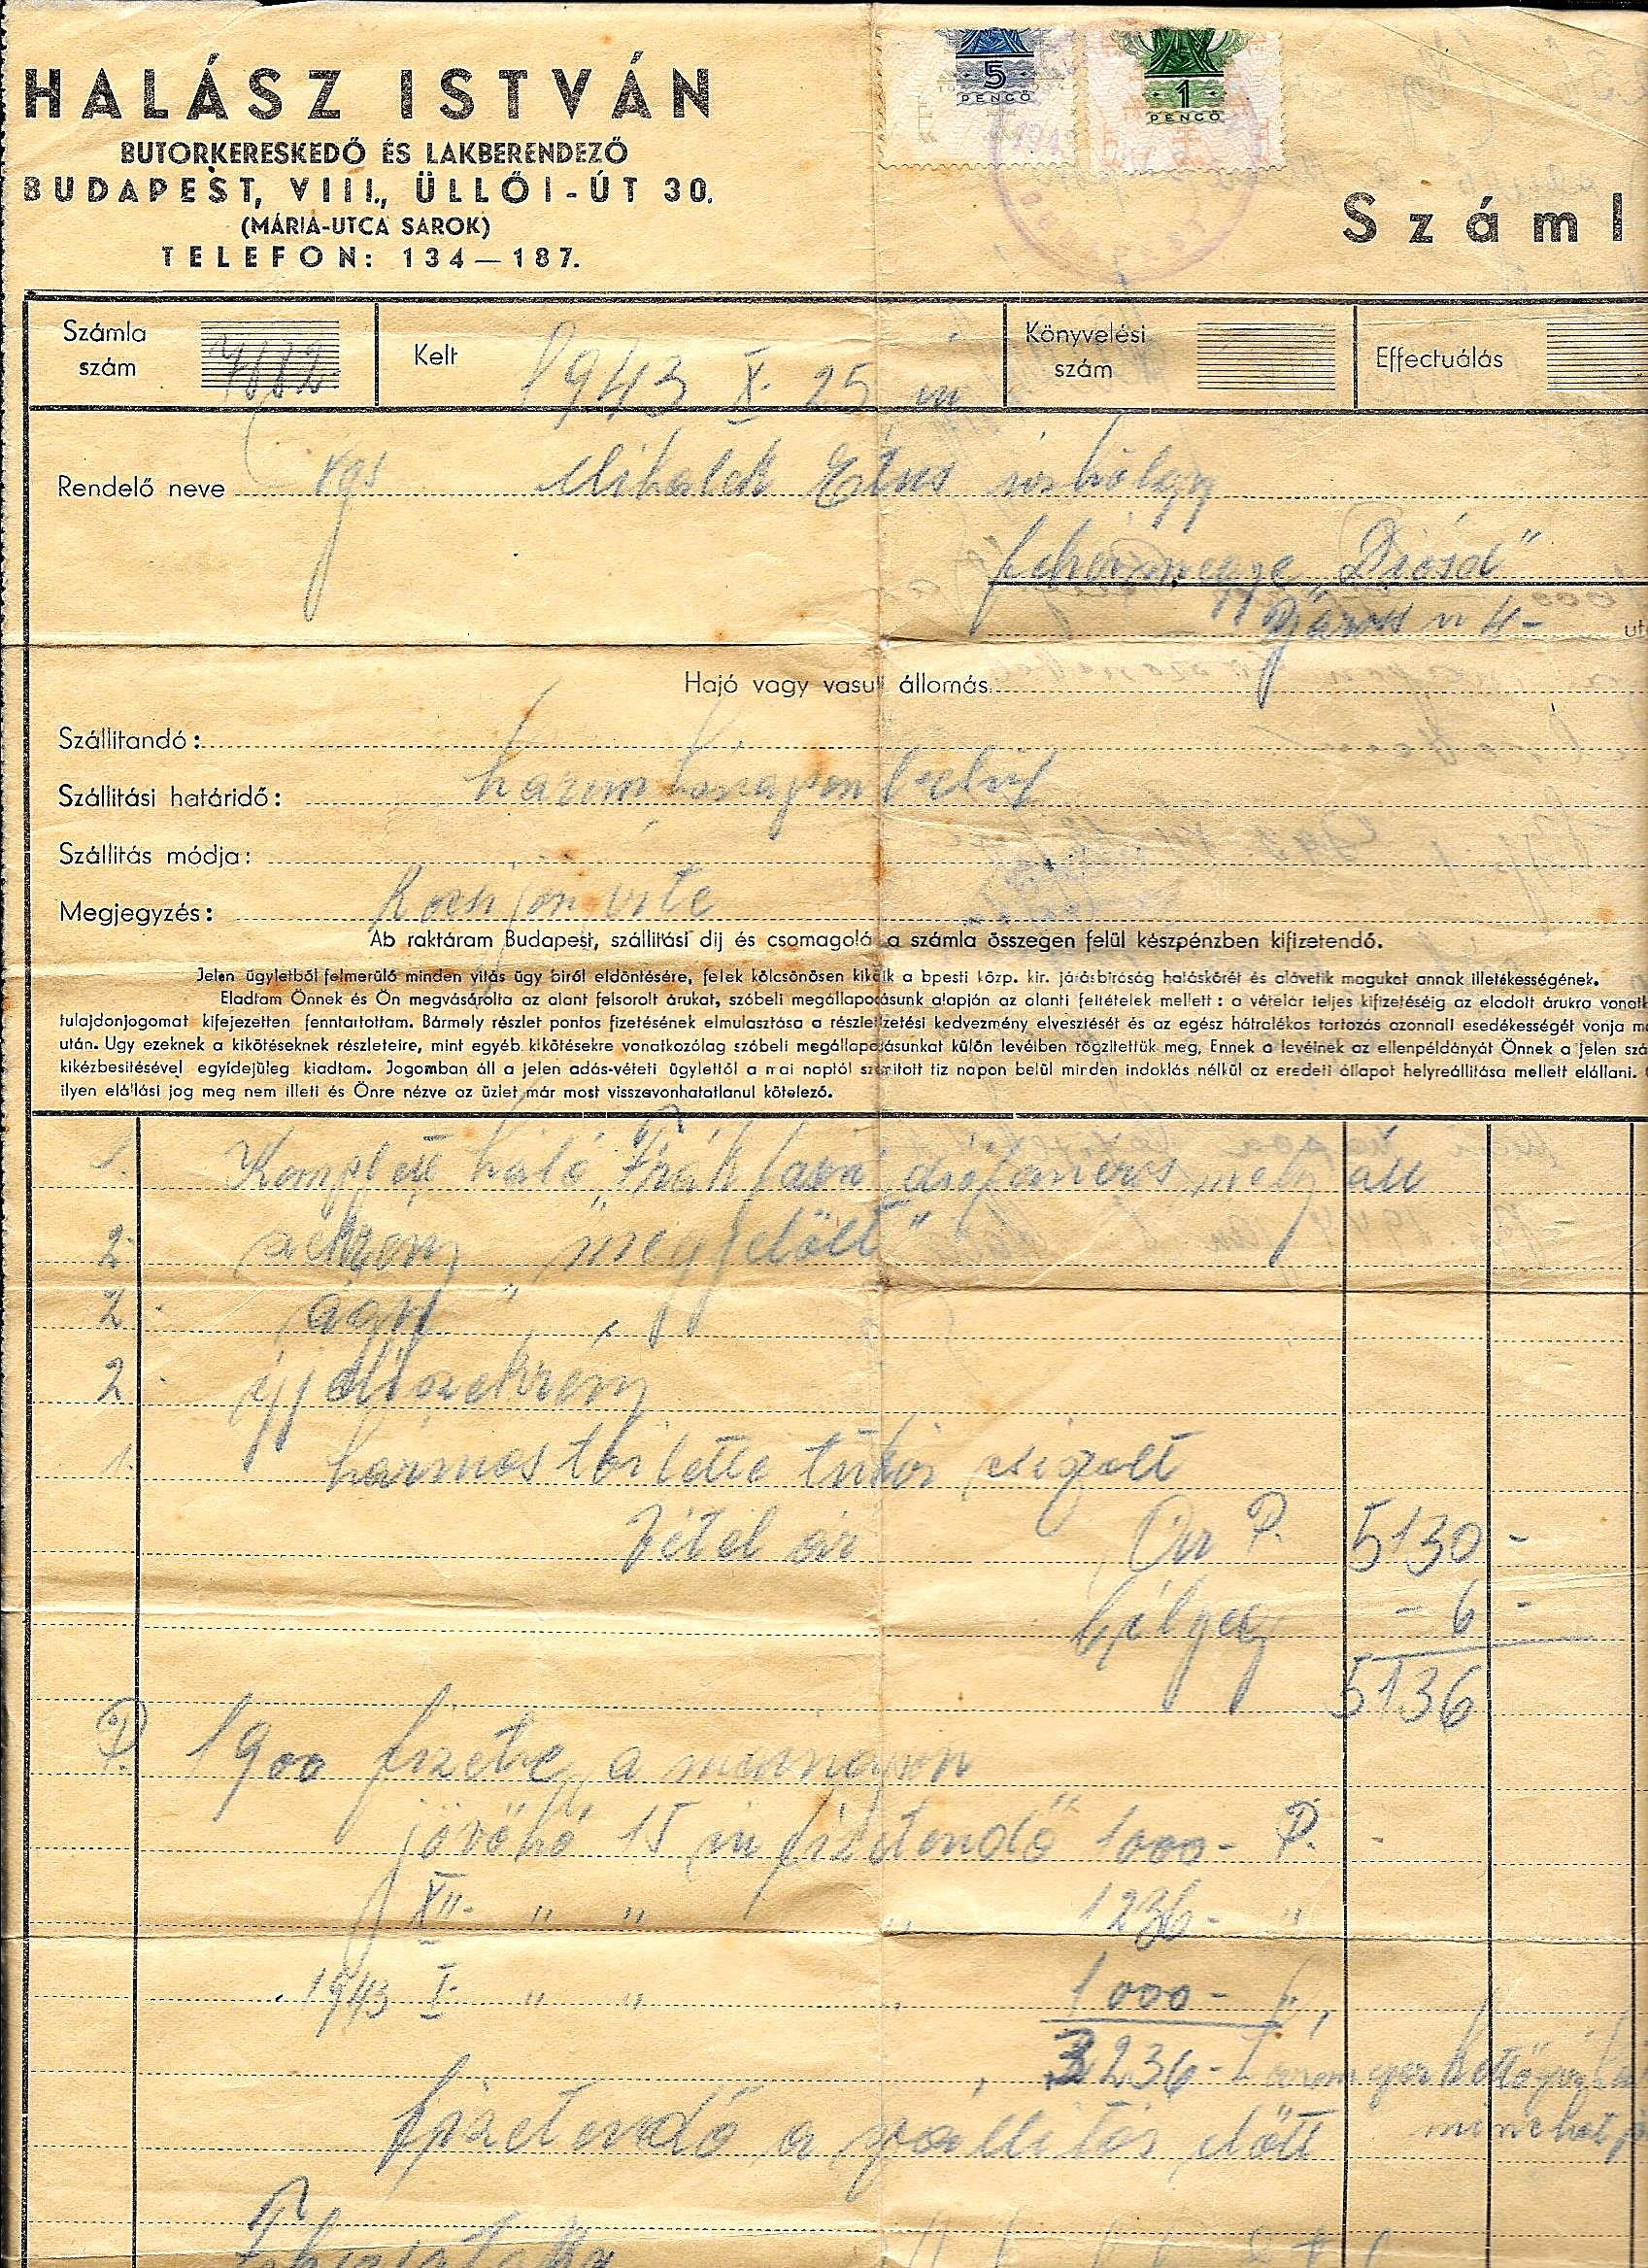 HALÁSZ ISTVÁN
BUTORKERESKEDŐ ÉS LAKBERENDEZŐ
BUDAPEST, VIII., ÜLLŐI-ÚT 30.
(MÁRIA-UTCA SAROK)
TELEFON: 134—187.
5
PENGŐ
1
PENGŐ
Száml
Számla szám
Kelt 1943 X. 25 én
Könyvelési szám
Effectuálás
Rendelő neve Etus úrhölgy
fehérmegye „Diósd"
4-
ut
Hajó vagy vasuti állomás
Szállitandó:
Szállitási határidő: három hónapon belül
Szállitás módja:
Megjegyzés: Kocsi jön érte
Ab raktáram Budapest, szállitási dij és csomagolá a számla összegen felül készpénzben kifizetendő.
Jelen ügyletből felmerülő minden vitás ügy birói eldöntésére, felek kölcsönösen kikötik a bpesti közp. kir. járásbiróság hatáskörét és alávetik magukat annak illetékességének.
Eladtam Önnek és Ön megvásárolta az alant felsorolt árukat, szóbeli megállapodásunk alapján az alanti feltételek mellett : a vételár teljes kifizetéséig az eladott árukra vonatk
tulajdonjogomat kifejezetten fenntartottam. Bármely részlet pontos fizetésének elmulasztása a részletfizetési kedvezmény elvesztését és az egész hátralékos tartozás azonnali esedékességét vonja m
után. Ugy ezeknek a kikötéseknek részleteire, mint egyéb kikötésekre vonatkozólag szóbeli megállapodásunkat külön levélben rögzitettük meg. Ennek a levélnek az ellenpéldányát Önnek a jelen szá
kikézbesitésével egyidejüleg kiadtam. Jogomban áll a jelen adás-vételi ügylettől a mai naptól számitott tiz napon belül minden indoklás nélkül az eredeti állapot helyreállitása mellett elállani.
ilyen elállási jog meg nem illeti és Önre nézve az üzlet már most visszavonhatatlanul kötelező.
1. Komplett háló diófanéros mely áll
2. szekrény
2. ágy
2. éjjeli szekrény
1. hármas toilette tükör csiszolt
Vétel ár P. 5130 -
bélyeg - 6 -
5136
P. 1900 fizetve a mai napon
jövő hó 15 én fizetendő 1000 - P. -
XII. " " " 1236 - "
1943 I. " " " 1000 -
3236 -
fizetendő a szállitás előtt